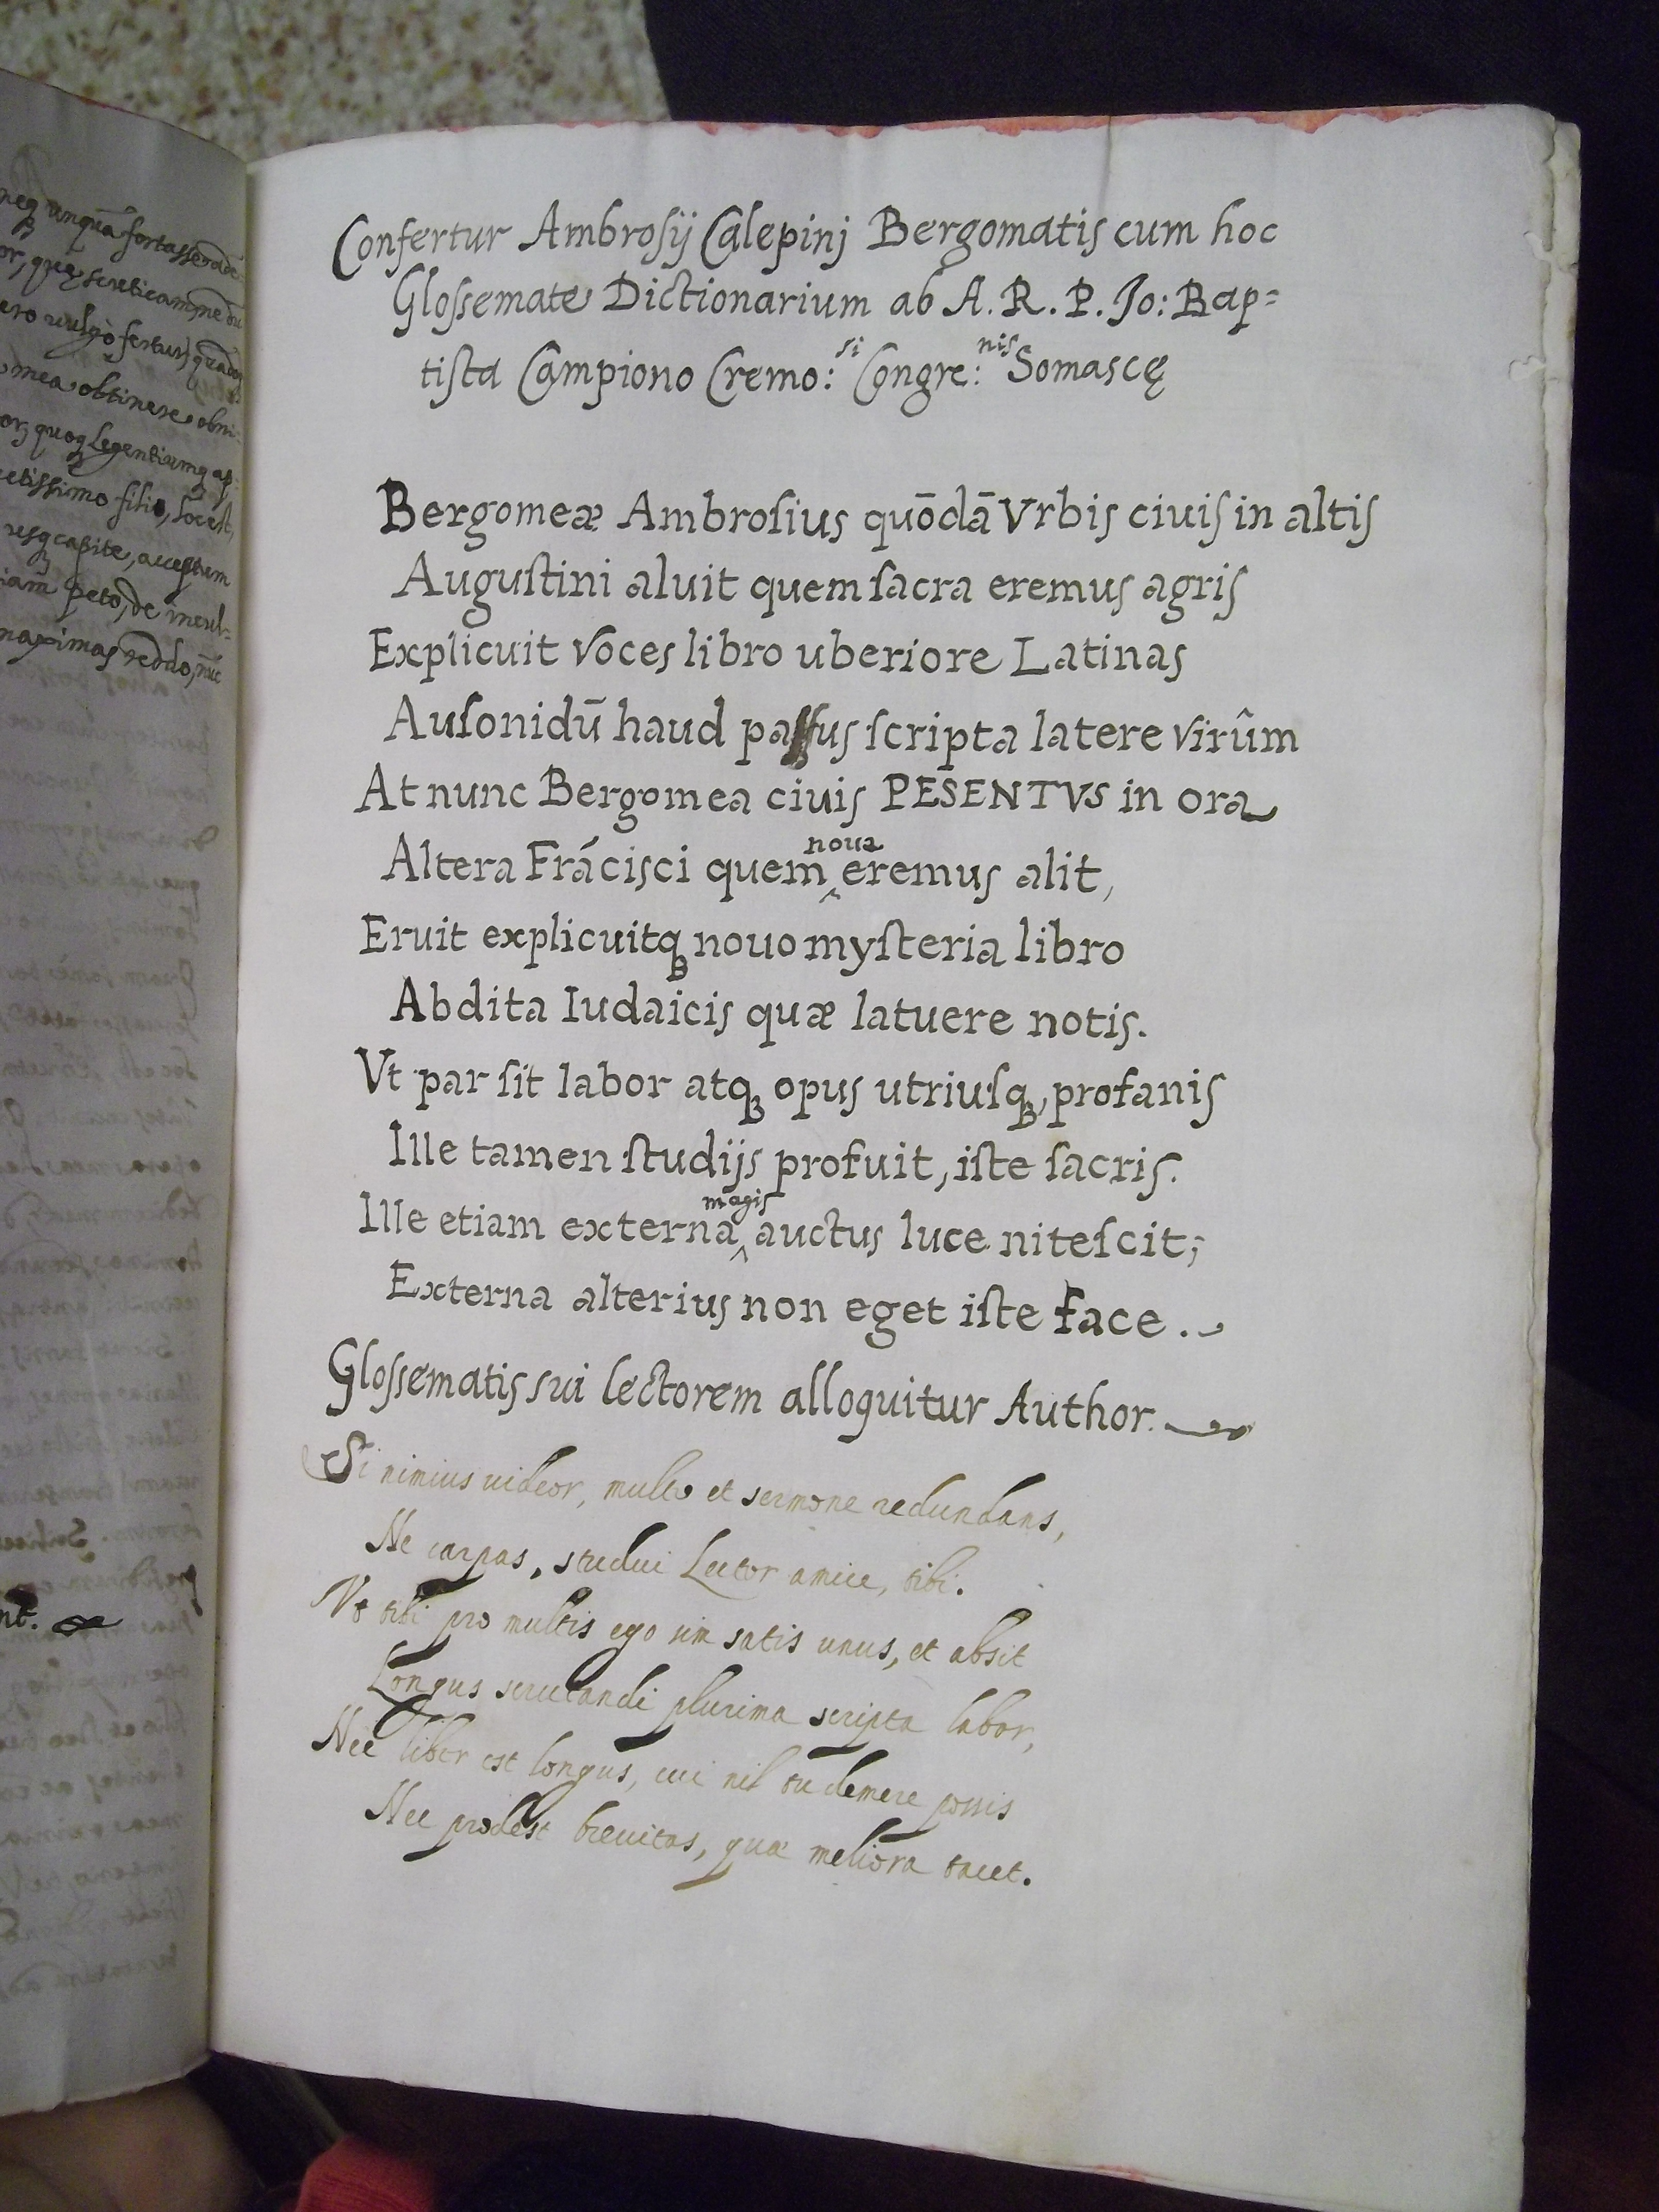 neq unquā fortasse
or, quę
ero uulgò fertur,
mea obtinere obni-
quoq legentiumq ap-
etissimo filio, hoc est,
usq capite, acceptum
iam peto, de incul-
maximas reddo, nūc
nt.
Confertur Ambrosij Calepinj Bergomatis cum hoc
Gloſsemate Dictionarium ab A. R. P. Jo: Bap=
tista Campiono Cremo:si Congre:nis Somascę
Bergomeæ Ambroſius quōdā Vrbis ciuis in altis
Auguſtini aluit quem ſacra eremus agris
Explicuit voces libro uberiore Latinas
Auſonidū haud paſſus ſcripta latere virûm
At nunc Bergomea ciuis PESENTVS in ora
Altera Frācisci quem noua eremus alit,
Eruit explicuitq; nouo myſteria libro
Abdita Iudaicis quæ latuere notis.
Vt par ſit labor atq; opus utriuſq;, profanis
Ille tamen ſtudijs profuit, iſte ſacris.
Ille etiam externa magis auctus luce niteſcit;
Externa alterius non eget iſte face.
Gloſsematis sui lectorem alloquitur Author.
Si nimius uideor, multo et sermone redundans,
Ne carpas, studui Lector amice, tibi.
Vt tibi pro multis ego sim satis unus, et absit
Longus scrutandi plurima scripta labor,
Nec liber est longus, cui nil tu demere possis
Nec prodest breuitas, quæ meliora tacet.